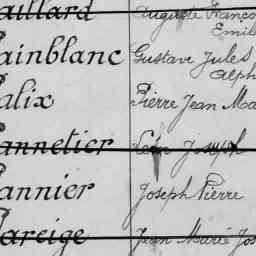 aillard Auguste Franço
Emil
ainblanc Gustave Jules
Alph
alix Pierre Jean Ma
annetier Léon Joseph
annier Joseph Pierre
areige Jean Marie Jos